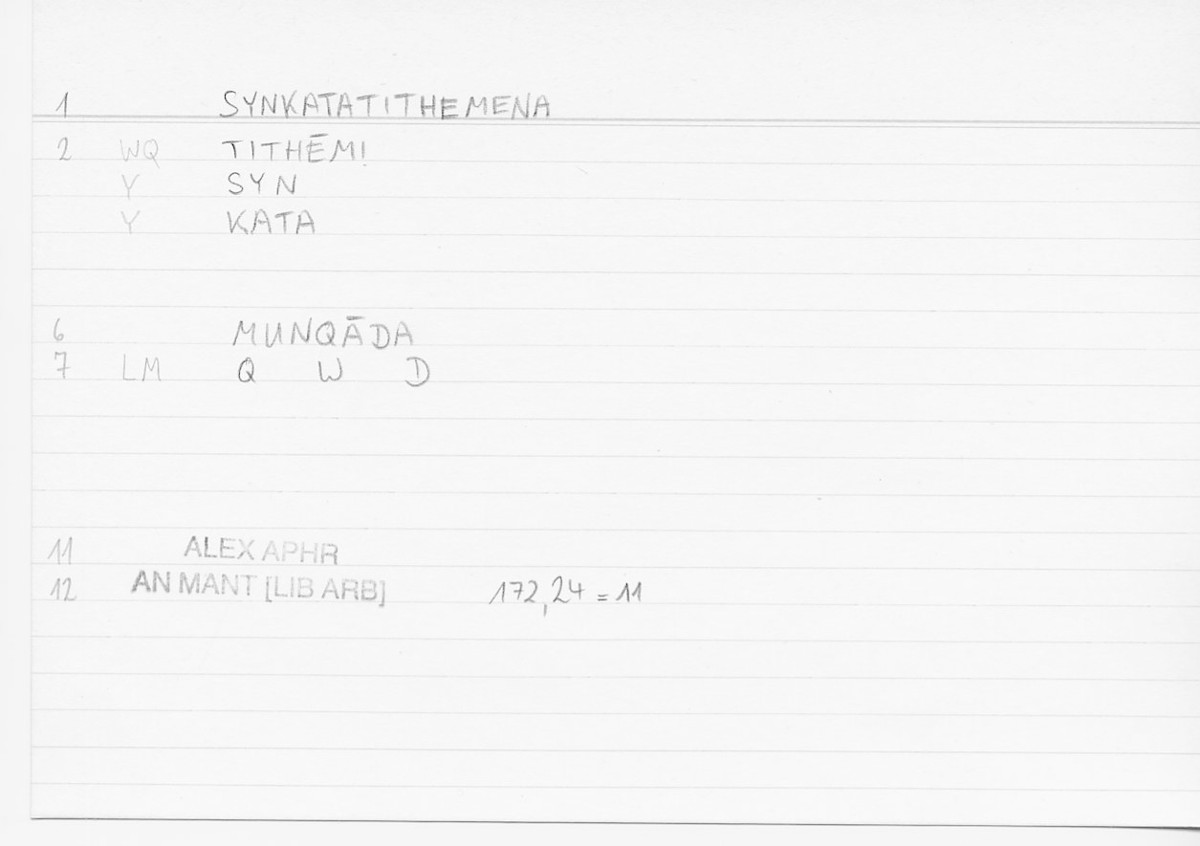 1 SYNKATATITHEMENA
2 WQ TITHĒMI
Y SYN
Y KATA
6 MUNQĀDA
7 LM Q W D
11 ALEX APHR
12 AN MANT [LIB ARB] 172,24 = 11